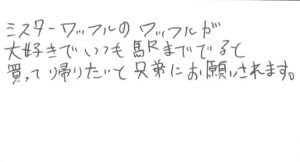 ミスターワッフルのワッフルが
大好きでいつも駅まででると
買って帰りたいと兄弟にお願いされます。